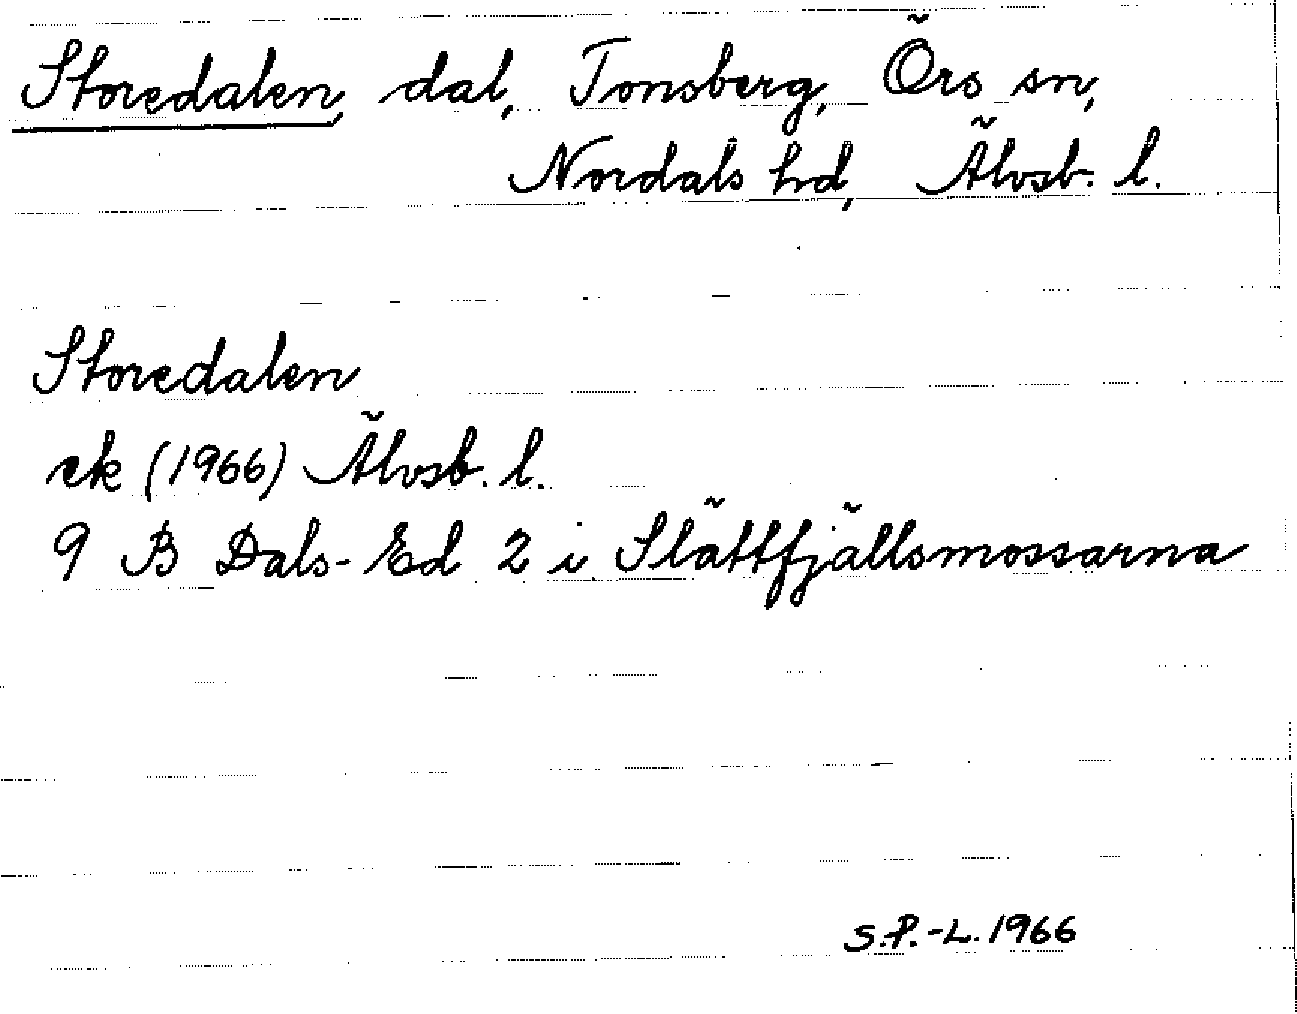 Storedalen, dal, Tonsberg, Örs sn,
Nordals hd, Älvsb. l.
Storedalen
ek (1966) Älvsb. l.
9 B Dals-Ed 2 i Slättfjällsmossarna
S.P.-L. 1966